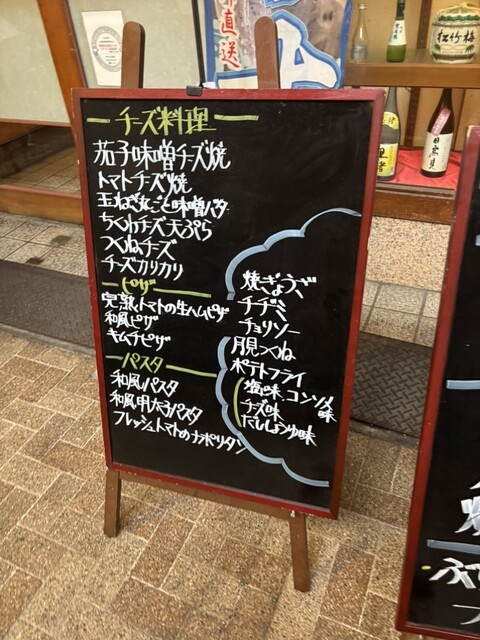 直送
松竹梅
チーズ料理
茄子味噌チーズ焼
トマトチーズ焼
玉ねぎ丸ごと味噌バター
ちくわチーズ天ぷら
つくねチーズ
チーズカリカリ
ピザ
完熟トマトの生ハムピザ
和風ピザ
キムチピザ
パスタ
和風パスタ
和風明太子パスタ
フレッシュトマトのナポリタン
焼ぎょうざ
チヂミ
チョリソー
月見つくね
ポテトフライ
塩味 コンソメ味
チーズ味
だししょうゆ味